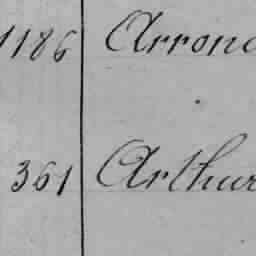 1186 Arrond
361 Arthur